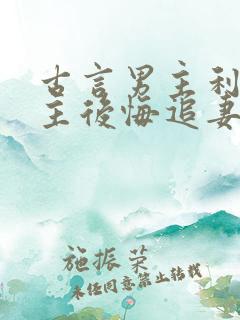 古言男主利
主後悔追妻
施振荣
未经同意禁止转载